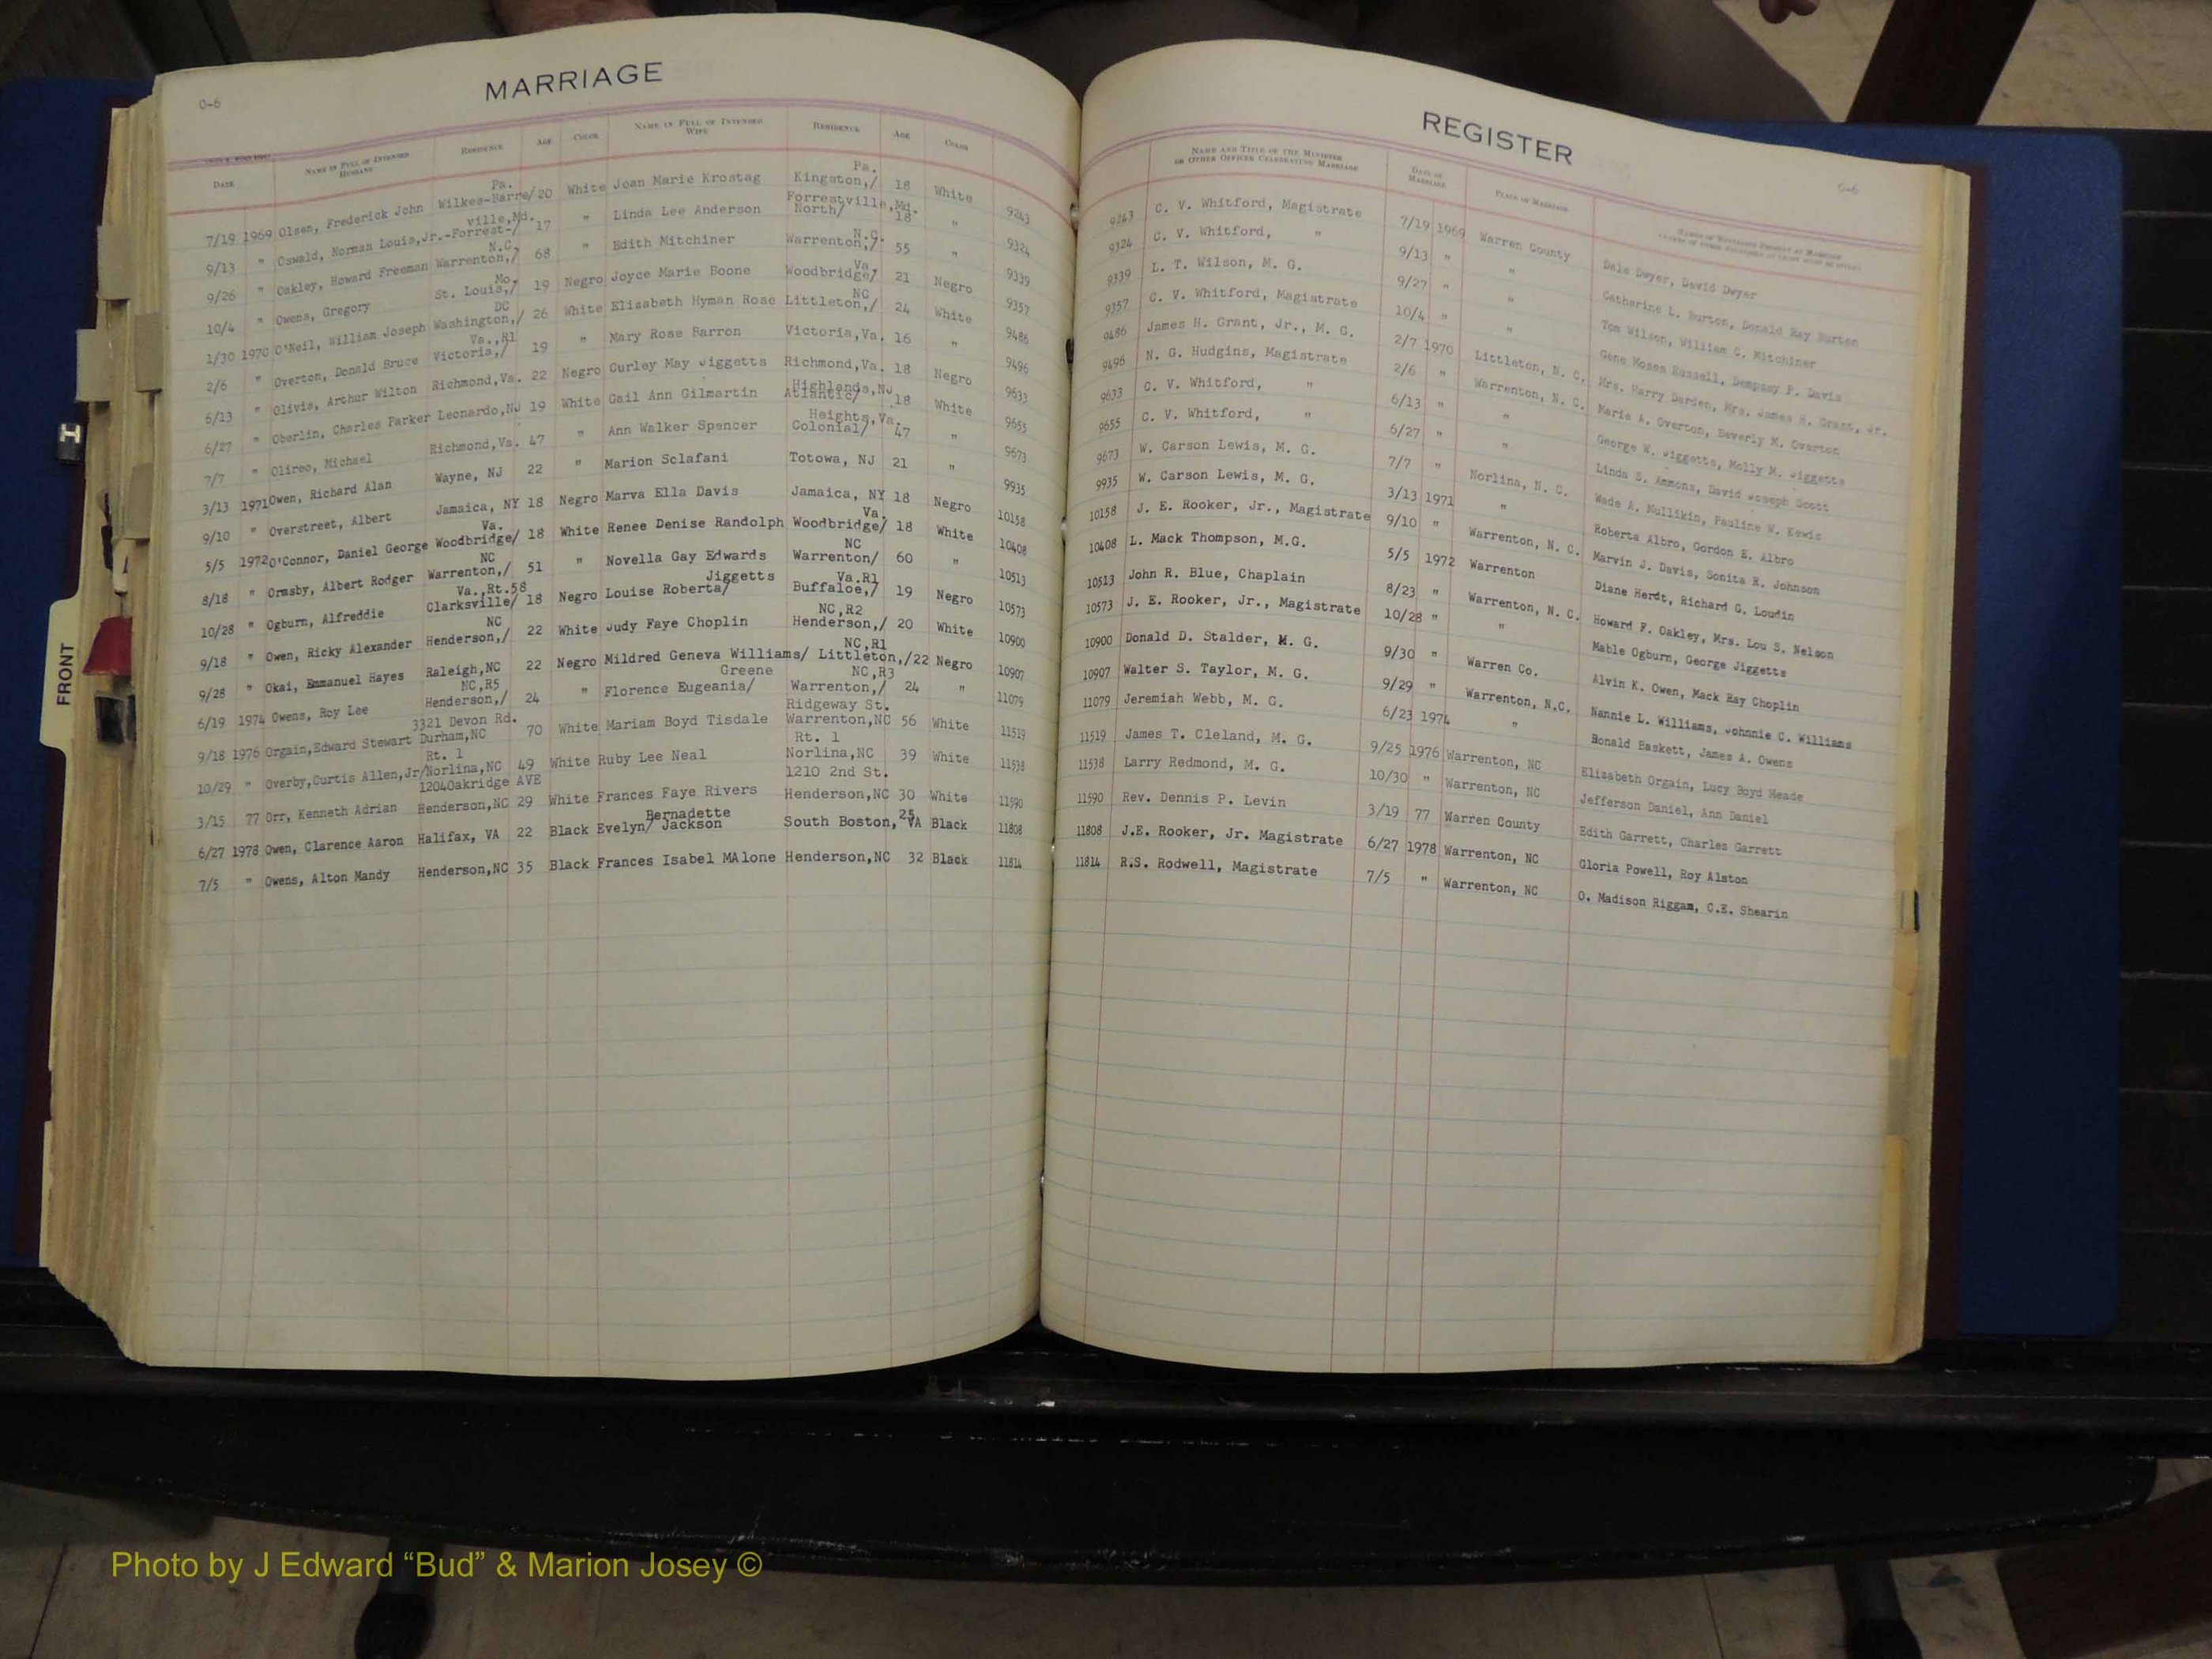 MARRIAGE
0-6
DATE NAME IN FULL OF INTENDED HUSBAND RESIDENCE AGE COLOR NAME IN FULL OF INTENDED WIFE RESIDENCE AGE COLOR
7/19 1969 Olsen, Frederick John Wilkes-Barre/ Pa. 20 White Joan Marie Krostag Kingston,/ Pa. 18 White 9243
9/13 " Oswald, Norman Louis,Jr.-Forrest-/ ville,Md. 17 " Linda Lee Anderson North/ Forrestville,Md. 18 " 9324
9/26 " Oakley, Howard Freeman Warrenton,/ N.C. 68 " Edith Mitchiner Warrenton,/ N.C. 55 " 9339
10/4 " Owens, Gregory St. Louis,/ Mo. 19 Negro Joyce Marie Boone Woodbridge/ Va. 21 Negro 9357
1/30 1970 O'Neil, William Joseph Washington,/ DC 26 White Elizabeth Hyman Rose Littleton,/ NC 24 White 9486
2/6 " Overton, Donald Bruce Victoria,/ Va.,R1 19 " Mary Rose Barron Victoria,Va. 16 " 9496
6/13 " Olivis, Arthur Wilton Richmond,Va. 22 Negro Curley May Jiggetts Richmond,Va. 18 Negro 9633
6/27 " Oberlin, Charles Parker Leonardo,NJ 19 White Gail Ann Gilmartin Atlantic/ Highlands,NJ 18 White 9655
7/7 " Olireo, Michael Richmond,Va. 47 " Ann Walker Spencer Colonial/ Heights,Va. 47 " 9673
3/13 1971 Owen, Richard Alan Wayne, NJ 22 " Marion Sclafani Totowa, NJ 21 " 9935
9/10 " Overstreet, Albert Jamaica, NY 18 Negro Marva Ella Davis Jamaica, NY 18 Negro 10158
5/5 1972 O'Connor, Daniel George Woodbridge/ Va. 18 White Renee Denise Randolph Woodbridge/ Va. 18 White 10408
8/18 " Ormsby, Albert Rodger Warrenton,/ NC 51 " Novella Gay Edwards Warrenton/ NC 60 " 10513
10/28 " Ogburn, Alfreddie Clarksville/ Va.,Rt.58 18 Negro Louise Roberta/ Jiggetts Buffaloe,/ Va.R1 19 Negro 10573
9/18 " Owen, Ricky Alexander Henderson,/ NC 22 White Judy Faye Choplin Henderson,/ NC,R2 20 White 10900
9/28 " Okai, Emmanuel Hayes Raleigh,NC 22 Negro Mildred Geneva Williams/ Littleton,/ NC,R1 22 Negro 10907
6/19 1974 Owens, Roy Lee Henderson,/ NC,R5 24 " Florence Eugeania/ Greene Warrenton,/ NC,R3 24 " 11079
9/18 1976 Orgain,Edward Stewart 3321 Devon Rd. Durham,NC 70 White Mariam Boyd Tisdale Ridgeway St. Warrenton,NC 56 White 11519
10/29 " Overby,Curtis Allen,Jr/ Rt. 1 Norlina,NC 49 White Ruby Lee Neal Rt. 1 Norlina,NC 39 White 11538
3/15 77 Orr, Kenneth Adrian 1204Oakridge AVE Henderson,NC 29 White Frances Faye Rivers 1210 2nd St. Henderson,NC 30 White 11590
6/27 1978 Owen, Clarence Aaron Halifax, VA 22 Black Evelyn/ Bernadette Jackson South Boston, VA 25 Black 11808
7/5 " Owens, Alton Mandy Henderson,NC 35 Black Frances Isabel MAlone Henderson,NC 32 Black 11814
REGISTER
0-6
NAME AND TITLE OF THE MINISTER OR OTHER OFFICER CELEBRATING MARRIAGE DATE OF MARRIAGE PLACE OF MARRIAGE
9243 C. V. Whitford, Magistrate 7/19 1969 Warren County Dale Dwyer, David Dwyer
9324 C. V. Whitford, " 9/13 " " Catherine L. Burton, Donald Ray Burton
9339 L. T. Wilson, M. G. 9/27 " " Tom Wilson, William C. Mitchiner
9357 C. V. Whitford, Magistrate 10/4 " " Gene Moses Russell, Dempsey P. Davis
9486 James H. Grant, Jr., M. G. 2/7 1970 Littleton, N. C. Mrs. Harry Darden, Mrs. James H. Grant, Jr.
9496 N. G. Hudgins, Magistrate 2/6 " Warrenton, N. C. Marie A. Overton, Beverly M. Overton
9633 C. V. Whitford, " 6/13 " " George W. Jiggetts, Molly M. Jiggetts
9655 C. V. Whitford, " 6/27 " " Linda S. Ammons, David Joseph Scott
9673 W. Carson Lewis, M. G. 7/7 " Norlina, N. C. Wade A. Mullikin, Pauline W. Kewis
9935 W. Carson Lewis, M. G. 3/13 1971 " Roberta Albro, Gordon E. Albro
10158 J. E. Rooker, Jr., Magistrate 9/10 " Warrenton, N. C. Marvin J. Davis, Sonita R. Johnson
10408 L. Mack Thompson, M.G. 5/5 1972 Warrenton Diane Herdt, Richard G. Loudin
10513 John R. Blue, Chaplain 8/23 " Warrenton, N. C. Howard F. Oakley, Mrs. Lou S. Nelson
10573 J. E. Rooker, Jr., Magistrate 10/28 " " Mable Ogburn, George Jiggetts
10900 Donald D. Stalder, M. G. 9/30 " Warren Co. Alvin K. Owen, Mack Ray Choplin
10907 Walter S. Taylor, M. G. 9/29 " Warrenton, N.C. Nannie L. Williams, Johnnie C. Williams
11079 Jeremiah Webb, M. G. 6/23 1974 " Ronald Baskett, James A. Owens
11519 James T. Cleland, M. G. 9/25 1976 Warrenton, NC Elizabeth Orgain, Lucy Boyd Meade
11538 Larry Redmond, M. G. 10/30 " Warrenton, NC Jefferson Daniel, Ann Daniel
11590 Rev. Dennis P. Levin 3/19 77 Warren County Edith Garrett, Charles Garrett
11808 J.E. Rooker, Jr. Magistrate 6/27 1978 Warrenton, NC Gloria Powell, Roy Alston
11814 R.S. Rodwell, Magistrate 7/5 " Warrenton, NC O. Madison Riggan, C.E. Shearin
FRONT
H
Photo by J Edward “Bud” & Marion Josey ©